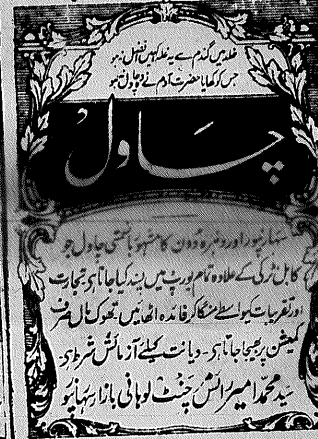 غلہ میں گندم سے یہ غلہ کہیں افضل نہ ہو
جس کو کھایا حضرت آدم نے وہ چاول نہ ہو
چاول
سہارنپور اور دہرہ دون کا مشہور باسمتی چاول جو
کابل ٹرکی کے علاوہ تمام یورپ میں پسند کیا جاتا ہو تجارت
اور تقریبات کیواسطے منگا کر فائدہ اٹھائیں۔ تھوک مال صرف
کمیشن پر بھیجا جاتا ہو۔ دیانت کیلئے آزمائش شرط ہو۔
سید محمد امیر رائس مرچنٹ لوہانی بازار سہارنپور